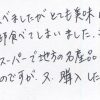 べましたがとても美味し
部食べてしまいました。こ
スーパーで地方の名産品
のですが、又、購入した